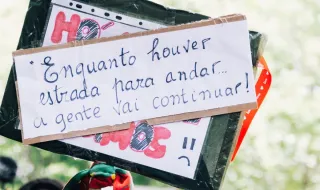 "Enquanto houver
estrada para andar...
a gente vai continuar!